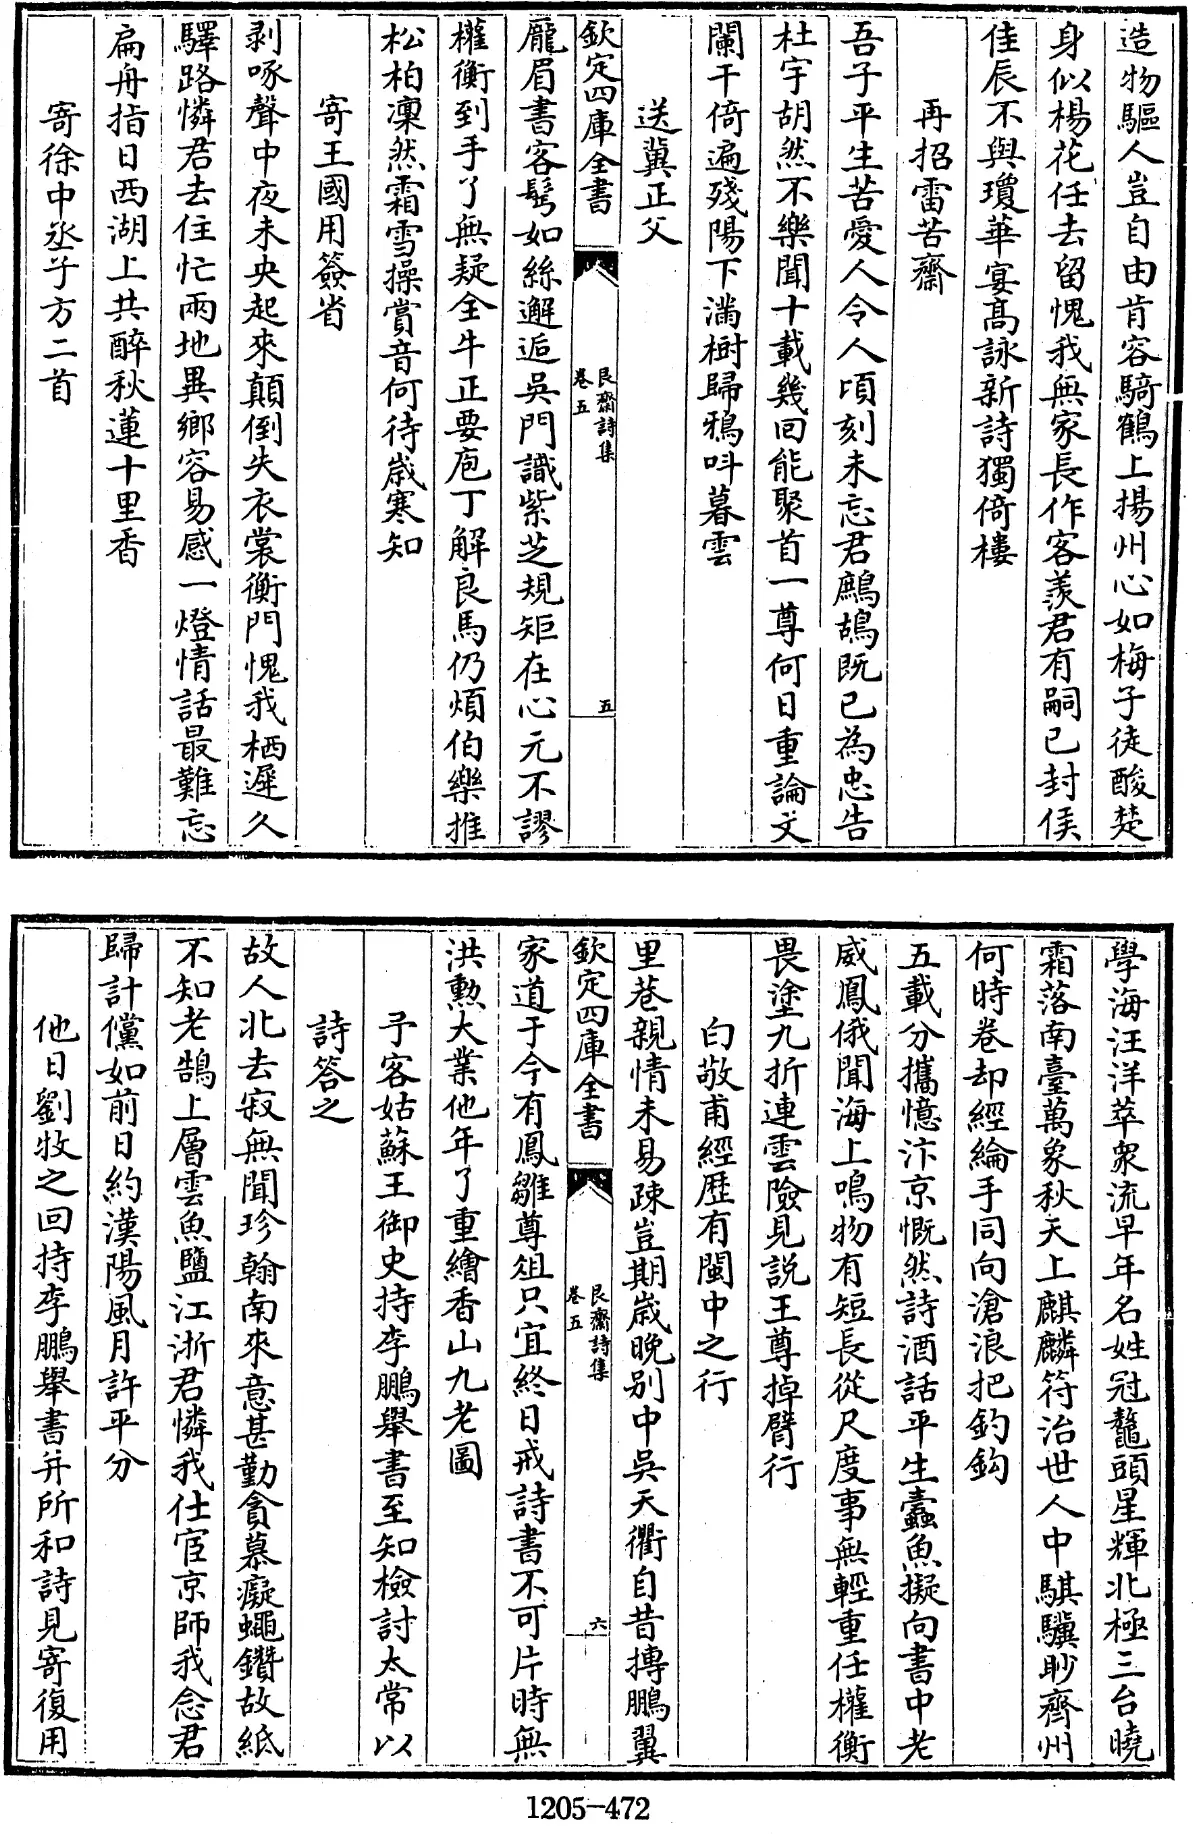 造物驅人豈自由肯容騎鶴上揚州心如梅子徒酸楚
身似楊花任去留愧我無家長作客羨君有嗣已封侯
佳辰不與瓊華宴髙詠新詩獨倚樓
再招雷苦齋
吾子平生苦愛人令人頃刻未忘君鷓鴣既已為忠告
杜宇胡然不樂聞十載幾回能聚首一尊何日重論文
闌干倚遍殘陽下滿樹歸鴉呌暮雲
送冀正父
欽定四庫全書
艮齋詩集
卷五
五
龎眉書客鬂如絲邂逅吳門識紫芝規矩在心元不謬
權衡到手了無疑全牛正要庖丁解良馬仍煩伯樂推
松柏凜然霜雪操賞音何待嵗寒知
寄王國用簽省
剥啄聲中夜未央起來顛倒失衣裳衡門愧我栖遲久
驛路憐君去住忙兩地異鄉容易感一燈情話最難忘
扁舟指日西湖上共醉秋蓮十里香
寄徐中丞子方二首
學海汪洋萃衆流早年名姓冠鼇頭星輝北極三台曉
霜落南臺萬象秋天上麒麟符治世人中騏驥眇齊州
何時卷却經綸手同向滄浪把釣鈎
五載分攜憶汴京慨然詩酒話平生蠧魚擬向書中老
威鳳俄聞海上鳴物有短長從尺度事無輕重任權衡
畏塗九折連雲險見説王尊掉臂行
白敬甫經歴有閩中之行
里巷親情未易疎豈期嵗晚别中吳天衢自昔摶鵬翼
欽定四庫全書
艮齋詩集
卷五
六
家道于今有鳳雛尊俎只宜終日戒詩書不可片時無
洪勲大業他年了重繪香山九老圖
予客姑蘇王御史持李鵬舉書至知檢討太常以
詩答之
故人北去寂無聞珍翰南來意甚勤貪慕癡蠅鑽故紙
不知老鵠上層雲魚鹽江浙君憐我仕宦京師我念君
歸計儻如前日約漢陽風月許平分
他日劉牧之回持李鵬舉書并所和詩見寄復用
1205-472